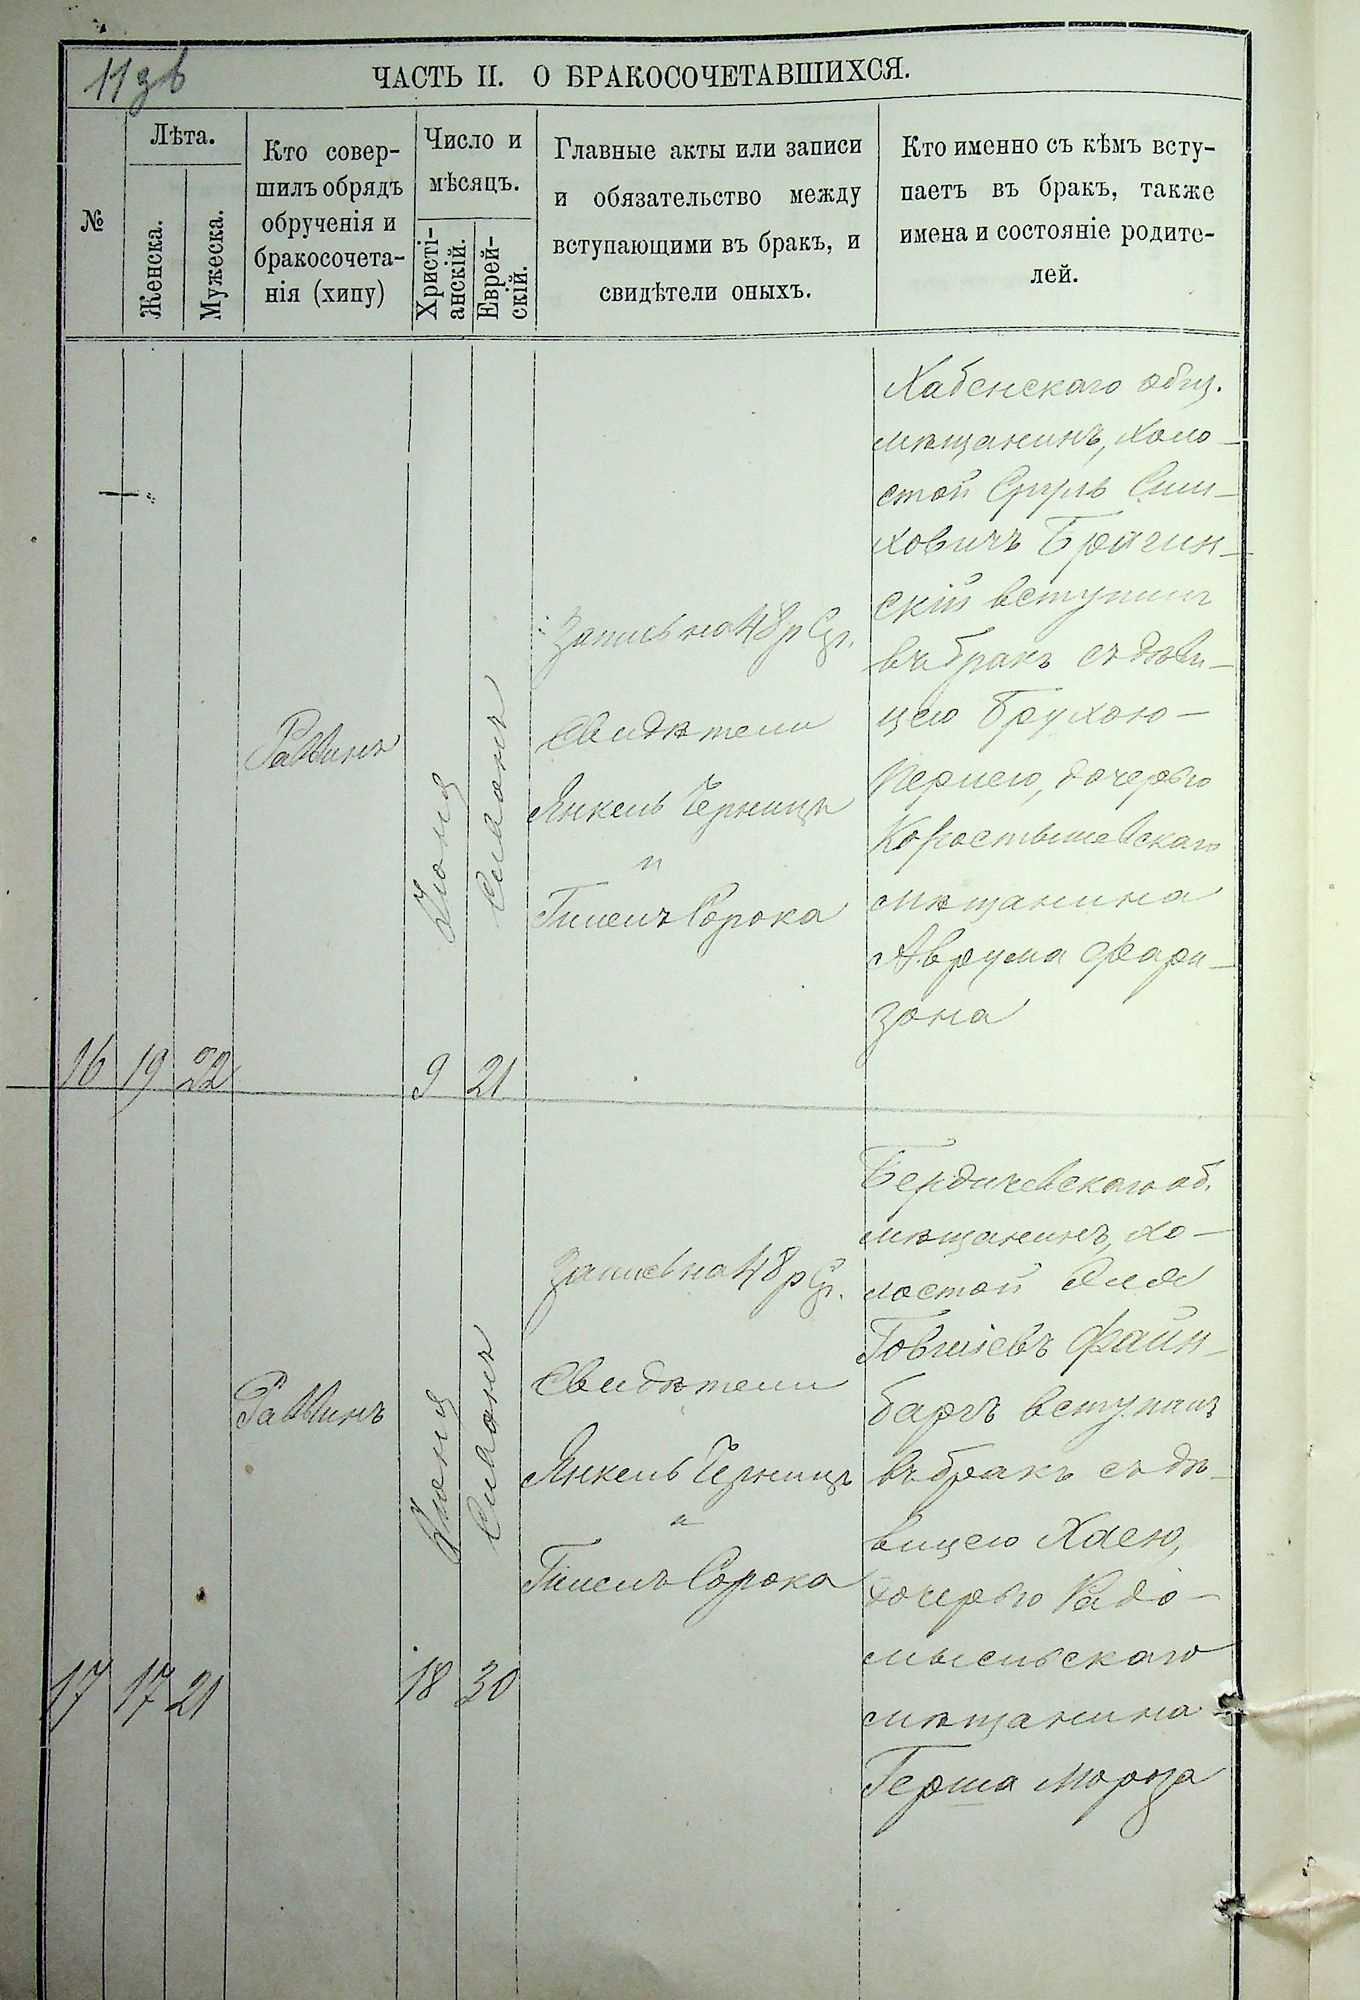 11 зв
ЧАСТЬ II. О БРАКОСОЧЕТАВШИХСЯ.
№
Лѣта.
Женска.
Мужеска.
Кто совер-
шилъ обрядъ
обрученія и
бракосочета-
нія (хипу)
Число и
мѣсяцъ.
Христі-
анскій.
Еврей-
скій.
Главные акты или записи
и обязательство между
вступающими въ бракъ, и
свидѣтели оныхъ.
Кто именно съ кѣмъ всту-
паетъ въ бракъ, также
имена и состояніе родите-
лей.
16
19
22
Раввинъ
Іюня
9
Сивонъ
21
Запись на 48 р Ср.
Свидѣтели
Янкель Черницъ
и
Гилель Сорока
Хабенскаго общ.
мѣщанинъ, холо-
стой Сруль Сим-
ховичъ Брагин-
скій вступилъ
въ бракъ съ дѣви-
цею Брухою-
Перлею, дочерью
Коростышевскаго
мѣщанина
Аврума Фари-
зона
17
17
21
Раввинъ
Іюня
18
Сивонъ
30
Запись на 48 р Ср.
Свидѣтели
Янкель Черницъ
и
Гилель Сорока
Бердичевскаго об.
мѣщанинъ, хо-
лостой
Товшіевъ Файн-
баргъ вступилъ
въ бракъ съ дѣ-
вицею Хаею,
дочерью Радо-
мысльскаго
мѣщанина
Герша Мороза